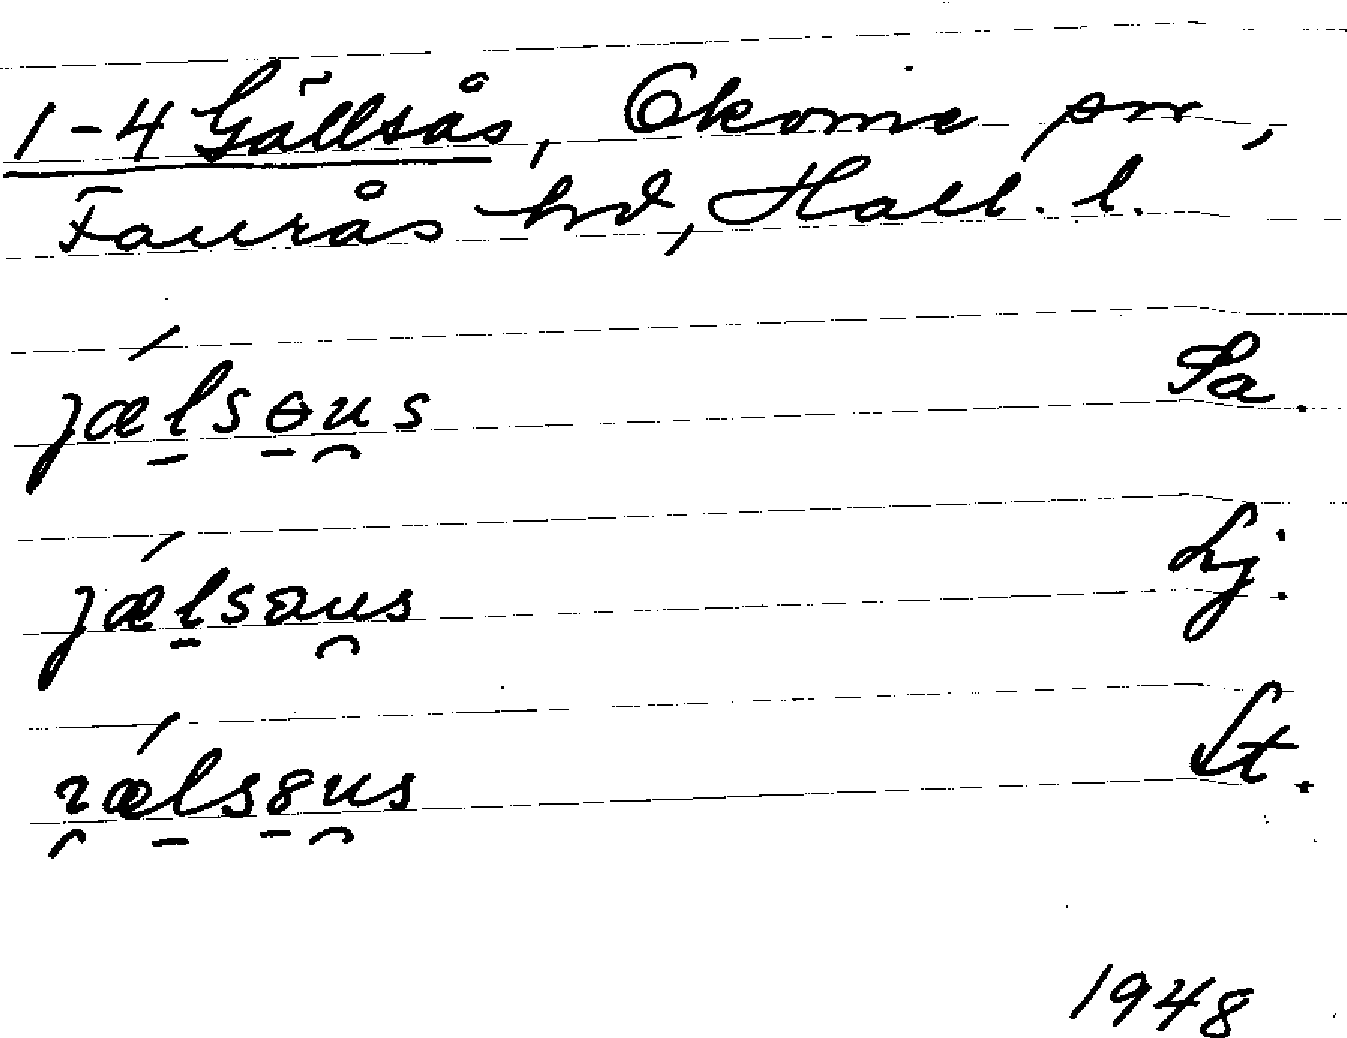 1-4 Gällsås, Okome sn,
Faurås hd, Hall. l.
jǽlsɵu̯s Sa.
jǽlsɑu̯s Lj.
ɪ̯ǽls8u̯s St.
1948